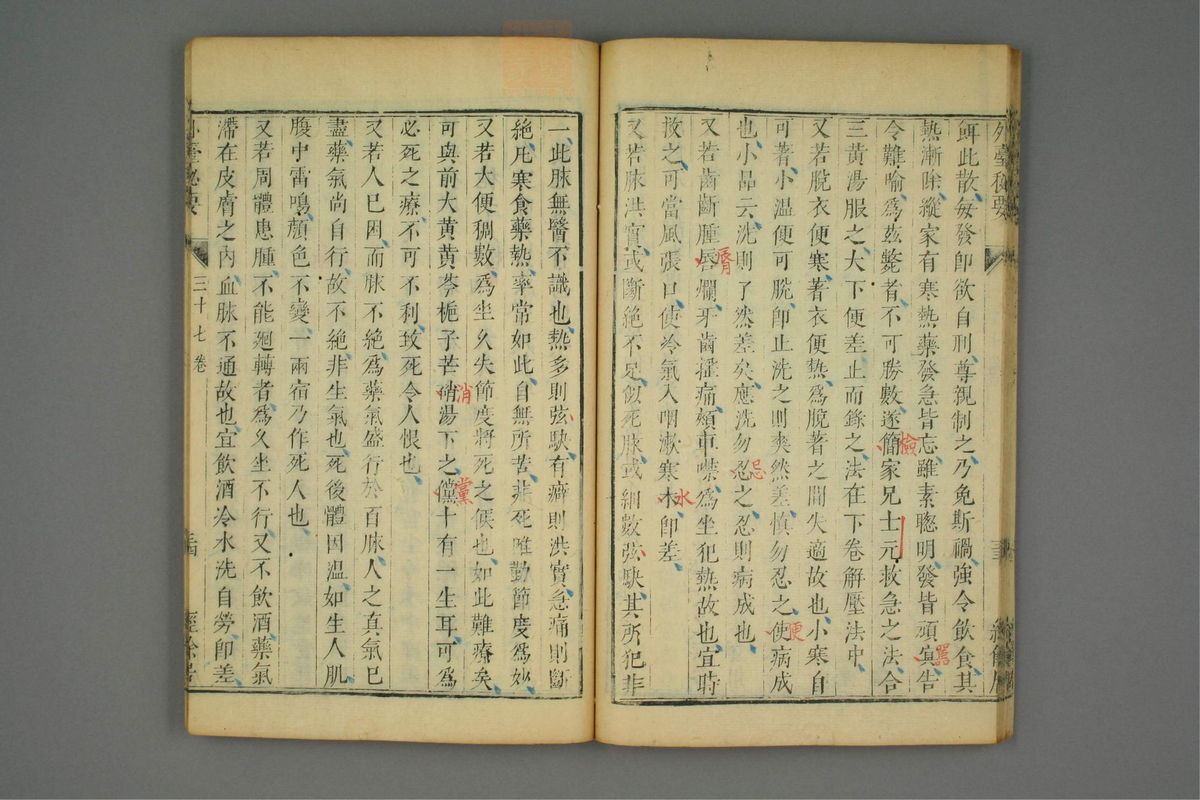 外臺秘要
餌此散每發即欲自刑尊視制之乃免斯禍強令飲食其
熱漸除縱家有寒熱藥發急皆忘雖素聰明發皆頑嚚告
令難喻為茲斃者不可勝數遂簡家兄士元救急之法合
檢
三黃湯服之大下便差止而錄之法在下卷解壓法中
又若脫衣便寒著衣便熱為脫著之間失適故也小寒自
可著小溫便可脫即止洗之則爽然差慎勿忍之使病成
便
也小品云洗則了然差矣應洗勿忍之忍則病成也
忌
又若齒齗腫唇爛牙齒搖痛頰車噤為坐犯熱故也宜時
脣
救之可當風張口使冷氣入咽漱寒木即差
水
又若脉洪實或斷絶不足似死脉或細數弦駃其所犯非
一此脉無醫不識也熱多則弦駃有癖則洪實急痛則斷
絶凡寒食藥熱率常如此自無所苦非死候勤節度為妙
又若大便稠數為坐久失節度將死之候也如此難療矣
可與前大黃黃芩梔子芒硝湯下之儻十有一生耳可為
消
黨
必死之療不可不利致死令人恨也
又若人已困而脉不絶為藥氣盛行於百脉人之真氣已
盡藥氣尚自行故不絶非生氣也死後體因溫如生人肌
腹中雷鳴顏色不變一兩宿乃作死人也
又若周體患腫不能廻轉者為久坐不行又不飲酒藥氣
滯在皮膚之內血脉不通故也宜飲酒冷水洗自勞即差
三十七卷